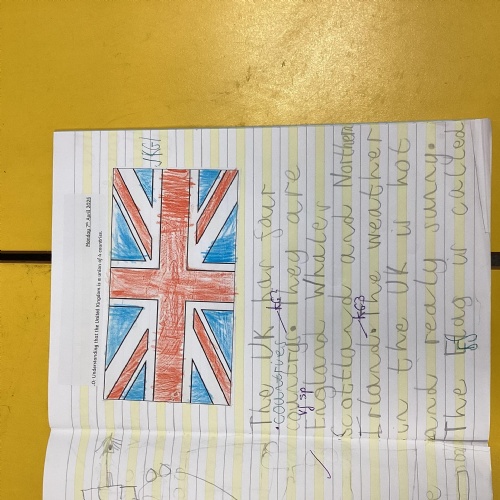 Monday 7th April 2025
.O: Understanding that the United Kingdom is a union of 4 countries.
The UK has four
countries. They are
England Whales
Scottland and Northern
Irland. The weather
in the UK is hot
and realy sunny.
The flag is called